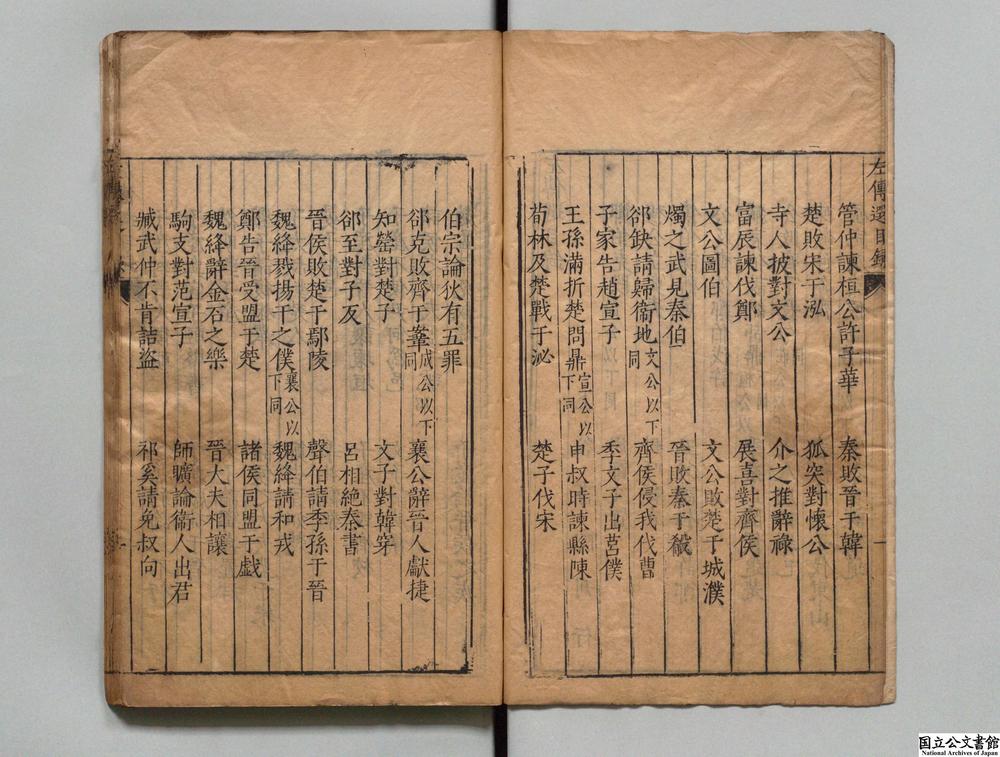 左傳選目錄
管仲諫桓公許子華　秦敗晉于韓
楚敗宋于泓　狐突對懷公
寺人披對文公　介之推辭祿
富辰諫伐鄭　展喜對齊侯
文公圖伯　文公敗楚于城濮
燭之武見秦伯　晉敗秦于殽
郤缺請歸衛地文公以下同　齊侯侵我伐曹
子家告趙宣子　季文子出莒僕
王孫滿折楚問鼎宣公以下同　申叔時諫縣陳
荀林及楚戰于泌　楚子伐宋
伯宗論狄有五罪
郤克敗齊于鞌成公以下同　襄公辭晉人獻捷
知罃對楚子　文子對韓穿
郤至對子反　呂相絕秦書
晉侯敗楚于鄢陵　聲伯請季孫于晉
魏絳戮揚干之僕襄公以下同　魏絳請和戎
鄭告晉受盟于楚　諸侯同盟于戲
魏絳辭金石之樂　晉大夫相讓
駒支對范宣子　師曠論衛人出君
臧武仲不肯詰盜　祁奚請免叔向
国立公文書館
National Archives of Japan